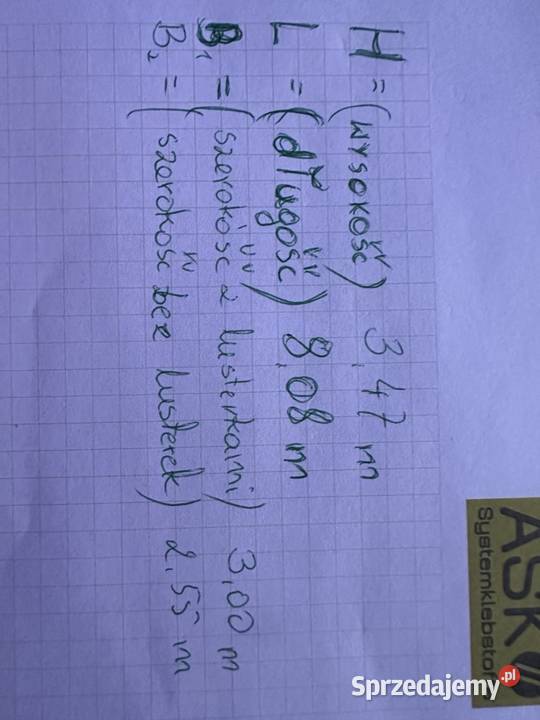 H = (wysokość) 3,47 m
L = (długość) 8,08 m
B1 = (szerokość z lusterkami) 3,00 m
B2 = (szerokość bez lusterek) 2,55 m
ASK
Systemklebsto
Sprzedajemy.pl